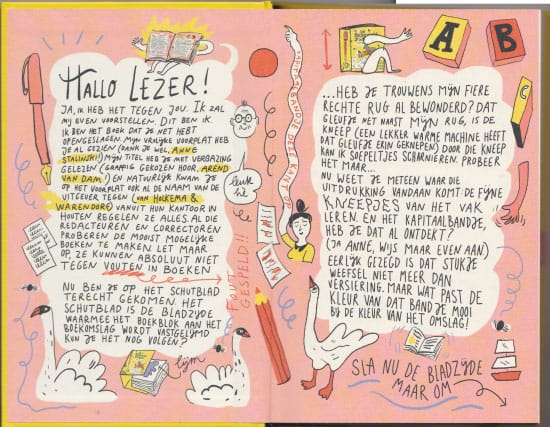 HALLO LEZER!
JA, IK HEB HET TEGEN JOU. IK ZAL
MIJ EVEN VOORSTELLEN. DIT BEN IK.
IK BEN HET BOEK DAT JE NET HEBT
OPENGESLAGEN. MIJN VROLIJKE VOORPLAT HEB
JE AL GEZIEN (DANK JE WEL, ANNE
STALINSKI!) MIJN TITEL HEB JE MET VERBAZING
GELEZEN (GRAPPIG GEKOZEN HOOR, AREND
VAN DAM!) EN NATUURLIJK KWAM JE
OP HET VOORPLAT OOK AL DE NAAM VAN DE
UITGEVER TEGEN (VAN HOLKEMA &
WARENDORF) VANUIT HUN KANTOOR IN
HOUTEN REGELEN ZE ALLES. AL DIE
REDACTEUREN EN CORRECTOREN
PROBEREN DE MOOIST MOGELIJKE
BOEKEN TE MAKEN. LET MAAR
OP, ZE KUNNEN ABSOLUUT NIET
TEGEN VOUTEN IN BOEKEN
NU BEN JE OP HET SCHUTBLAD
TERECHT GEKOMEN. HET
SCHUTBLAD IS DE BLADZIJDE
WAARMEE HET BOEKBLOK AAN HET
BOEKOMSLAG WORDT VASTGELIJMD
KUN JE HET NOG VOLGEN?
lijm
leuk hè
FOUT
GESPELD!!
...HEB JE TROUWENS MIJN FIERE
RECHTE RUG AL BEWONDERD? DAT
GLEUFJE NET NAAST MIJN RUG, IS DE
KNEEP (EEN LEKKER WARME MACHINE HEEFT
DAT GLEUFJE ERIN GEKNEPEN) DOOR DIE KNEEP
KAN IK SOEPELTJES SCHARNIEREN. PROBEER
HET MAAR...
NU WEET JE METEEN WAAR DIE
UITDRUKKING VANDAAN KOMT DE FIJNE
KNEEPJES VAN HET VAK
LEREN. EN HET KAPITAALBANDJE,
HEB JE DAT AL ONTDEKT?
(JA ANNE, WIJS MAAR EVEN AAN)
EERLIJK GEZEGD IS DAT STUKJE
WEEFSEL NIET MEER DAN
VERSIERING. MAAR WAT PAST DE
KLEUR VAN DAT BAND JE MOOI
BIJ DE KLEUR VAN HET OMSLAG!
SLA NU DE BLADZIJDE
MAAR OM
A
B